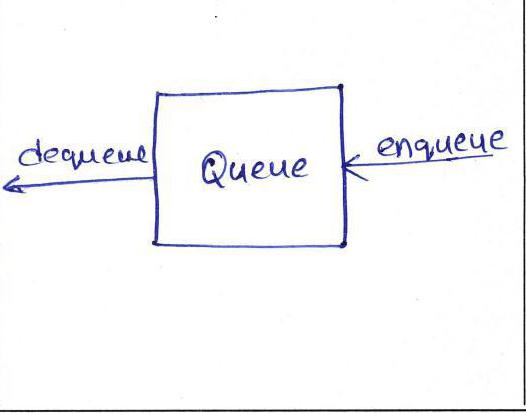 dequeue
Queue
enqueue